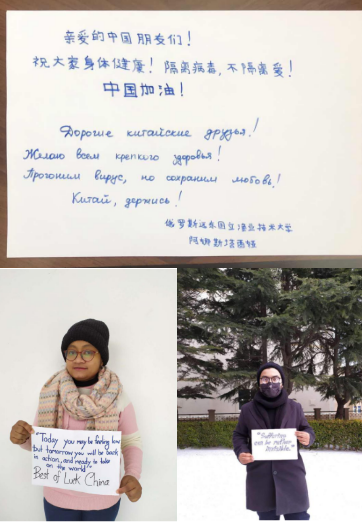 亲爱的中国朋友们！
祝大家身体健康！隔离病毒，不隔离爱！
中国加油！
Дорогие китайские друзья!
Желаю всем крепкого здоровья!
Прогоним вирус, но сохраним любовь!
Китай, держись!
俄罗斯远东国立渔业技术大学
"Today you may be feeling low
but tomorrow you will be back
in action, and ready to take
on the world"
Best of Luck China
can be neither